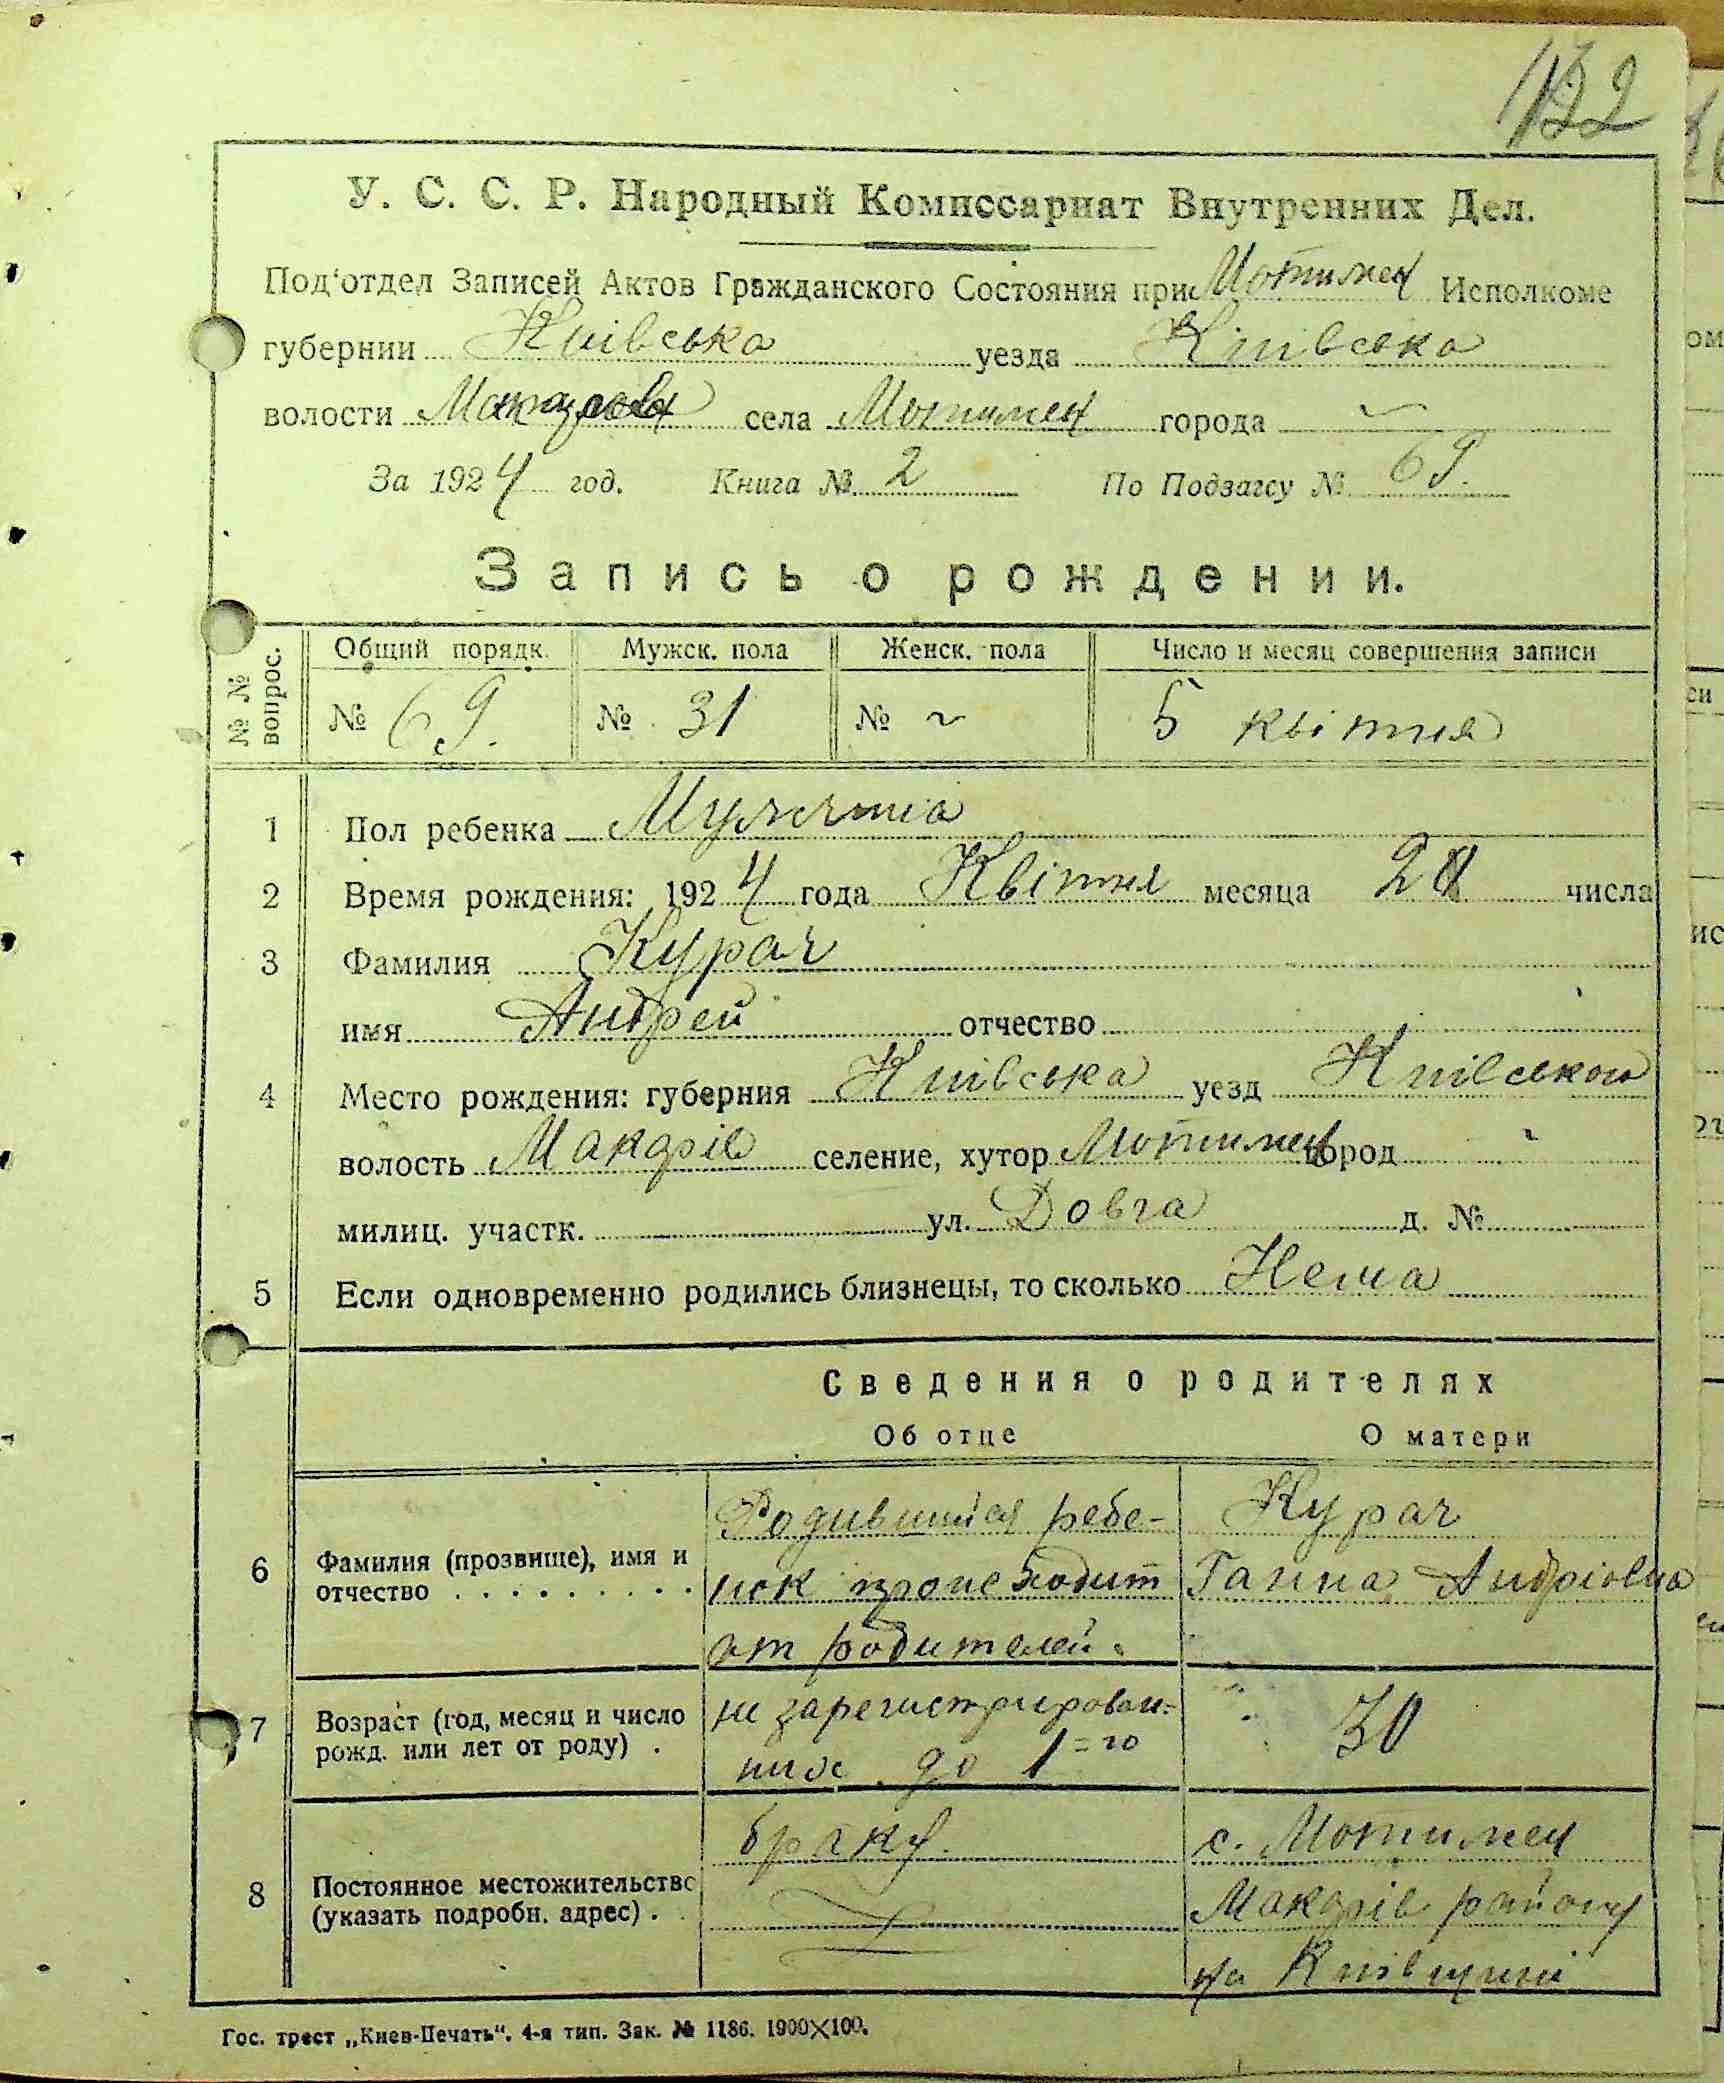 132
У. С. С. Р. Народный Комиссариат Внутренних Дел.
Под'отдел Записей Актов Гражданского Состояния при Мотижец Исполкоме
губернии Київсько уезда Київсько
волости села Мотижец города
За 1924 год. Книга № 2 По Подзагсу № 69.
Запись о рождении.
№ № вопрос. Общий порядк. Мужск. пола Женск. пола Число и месяц совершения записи
№ 69. № 31 № ~ 5 квітня
1 Пол ребенка
2 Время рождения: 1924 года Квітня месяца числа
3 Фамилия Курач
имя Андрей отчество
4 Место рождения: губерния Київська уезд Київськои
волость Макарів селение, хутор Мотижец город
милиц. участк. ул. Довга д. №
5 Если одновременно родились близнецы, то сколько Нема
Сведения о родителях
Об отце О матери
6 Фамилия (прозвище), имя и отчество . . . . . . . . .
Родившийся ребе-
нок происходит
от родителей
Курач
Ганна Андріовна
7 Возраст (год, месяц и число рожд. или лет от роду) .
не зарегистрирован-
них до 1=го
30
8 Постоянное местожительство (указать подробн. адрес) .
браку.
с. Мотижец
Макарів району
на Київщині
Гос. трест „Киев-Печать“. 4-я тип. Зак. № 1186. 1900×100.